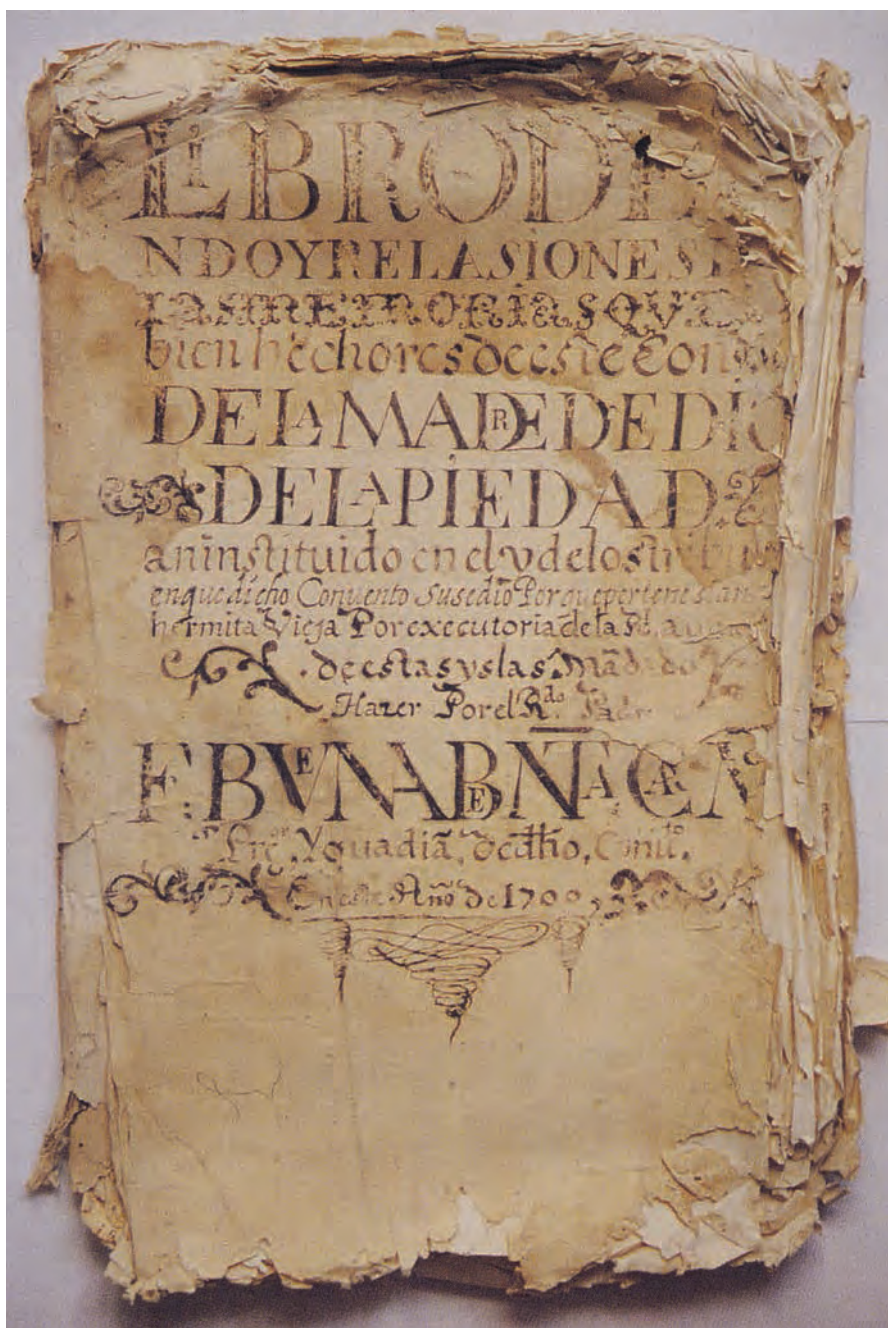 LIBRO DE
NDO Y RELASIONES D
LAS MEMORIAS QVE
bien hechores de este Conv
DE LA MADRE DE DIO
DE LA PIEDAD
an instituido en el y de los tribu
en que dicho Convento Susedio Por que pertenesian
hermita Vieja Por executoria de la Rl. au
de estas yslas. Mādado
Hazer Por el Rdo. Padr
Fr. BVENABENTA. CA
Pre.or Y guadiā. de dho. Conuto.
En este Año de 1700